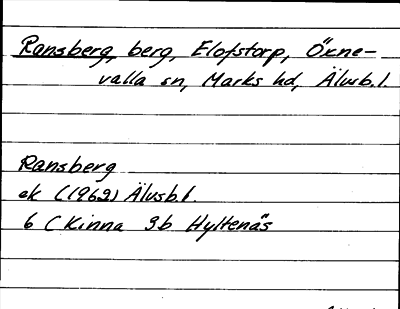 Ransberg, berg, Elofstorp, Öxne-
valla sn, Marks hd, Älvsb.l.
Ransberg
ek (1969) Älvsb.l.
6 C Kinna 9b Hyltenäs